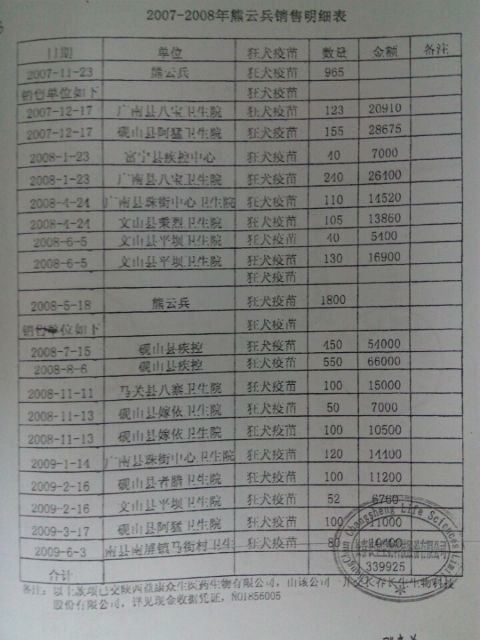 2007-2008年熊云兵销售明细表
日期 单位 狂犬疫苗 数量 金额 备注
2007-11-23 熊云兵 狂犬疫苗 965
销售单位如下 狂犬疫苗
2007-12-17 广南县八宝卫生院 狂犬疫苗 123 20910
2007-12-17 砚山县阿猛卫生院 狂犬疫苗 155 28675
2008-1-23 富宁县疾控中心 狂犬疫苗 40 7000
2008-1-23 广南县八宝卫生院 狂犬疫苗 240 26400
2008-4-24 广南县珠街中心卫生院 狂犬疫苗 110 14520
2008-4-24 文山县秉烈卫生院 狂犬疫苗 105 13860
2008-6-5 文山县平坝卫生院 狂犬疫苗 40 5400
2008-6-5 文山县平坝卫生院 狂犬疫苗 130 16900
狂犬疫苗
2008-5-18 熊云兵 狂犬疫苗 1800
销售单位如下 狂犬疫苗
2008-7-15 砚山县疾控 狂犬疫苗 450 54000
2008-8-6 砚山县疾控 狂犬疫苗 550 66000
2008-11-11 马关县八寨卫生院 狂犬疫苗 100 15000
2008-11-13 砚山县嫁依卫生院 狂犬疫苗 50 7000
2008-11-13 砚山县嫁依卫生院 狂犬疫苗 100 10500
2009-1-14 广南县珠街中心卫生院 狂犬疫苗 120 14400
2009-2-16 砚山县者腊卫生院 狂犬疫苗 100 11200
2009-2-16 文山县平坝卫生院 狂犬疫苗 52 6760
2009-3-17 砚山县阿猛卫生院 狂犬疫苗 100 11000
2009-6-3 南县南屏镇马街村卫生 狂犬疫苗 80
合计
Changchun Changsheng Life Sciences Limited
339925
备注：以上款项已交陕西益康众生医药生物有限公司，由该公司 长春长生生物科技
股份有限公司，详见现金收据凭证，NO1856005